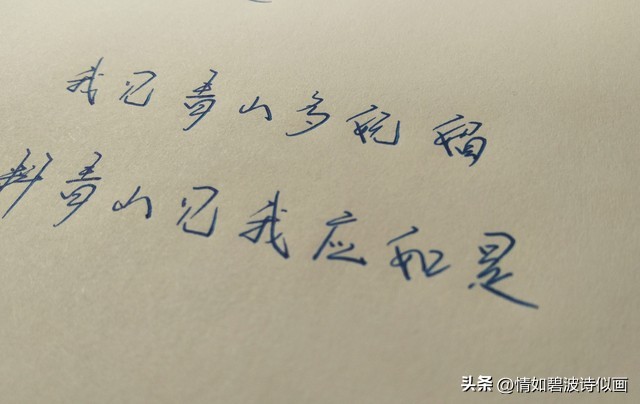 我见青山多妩媚
料青山见我应如是
头条 @情如碧波诗似画